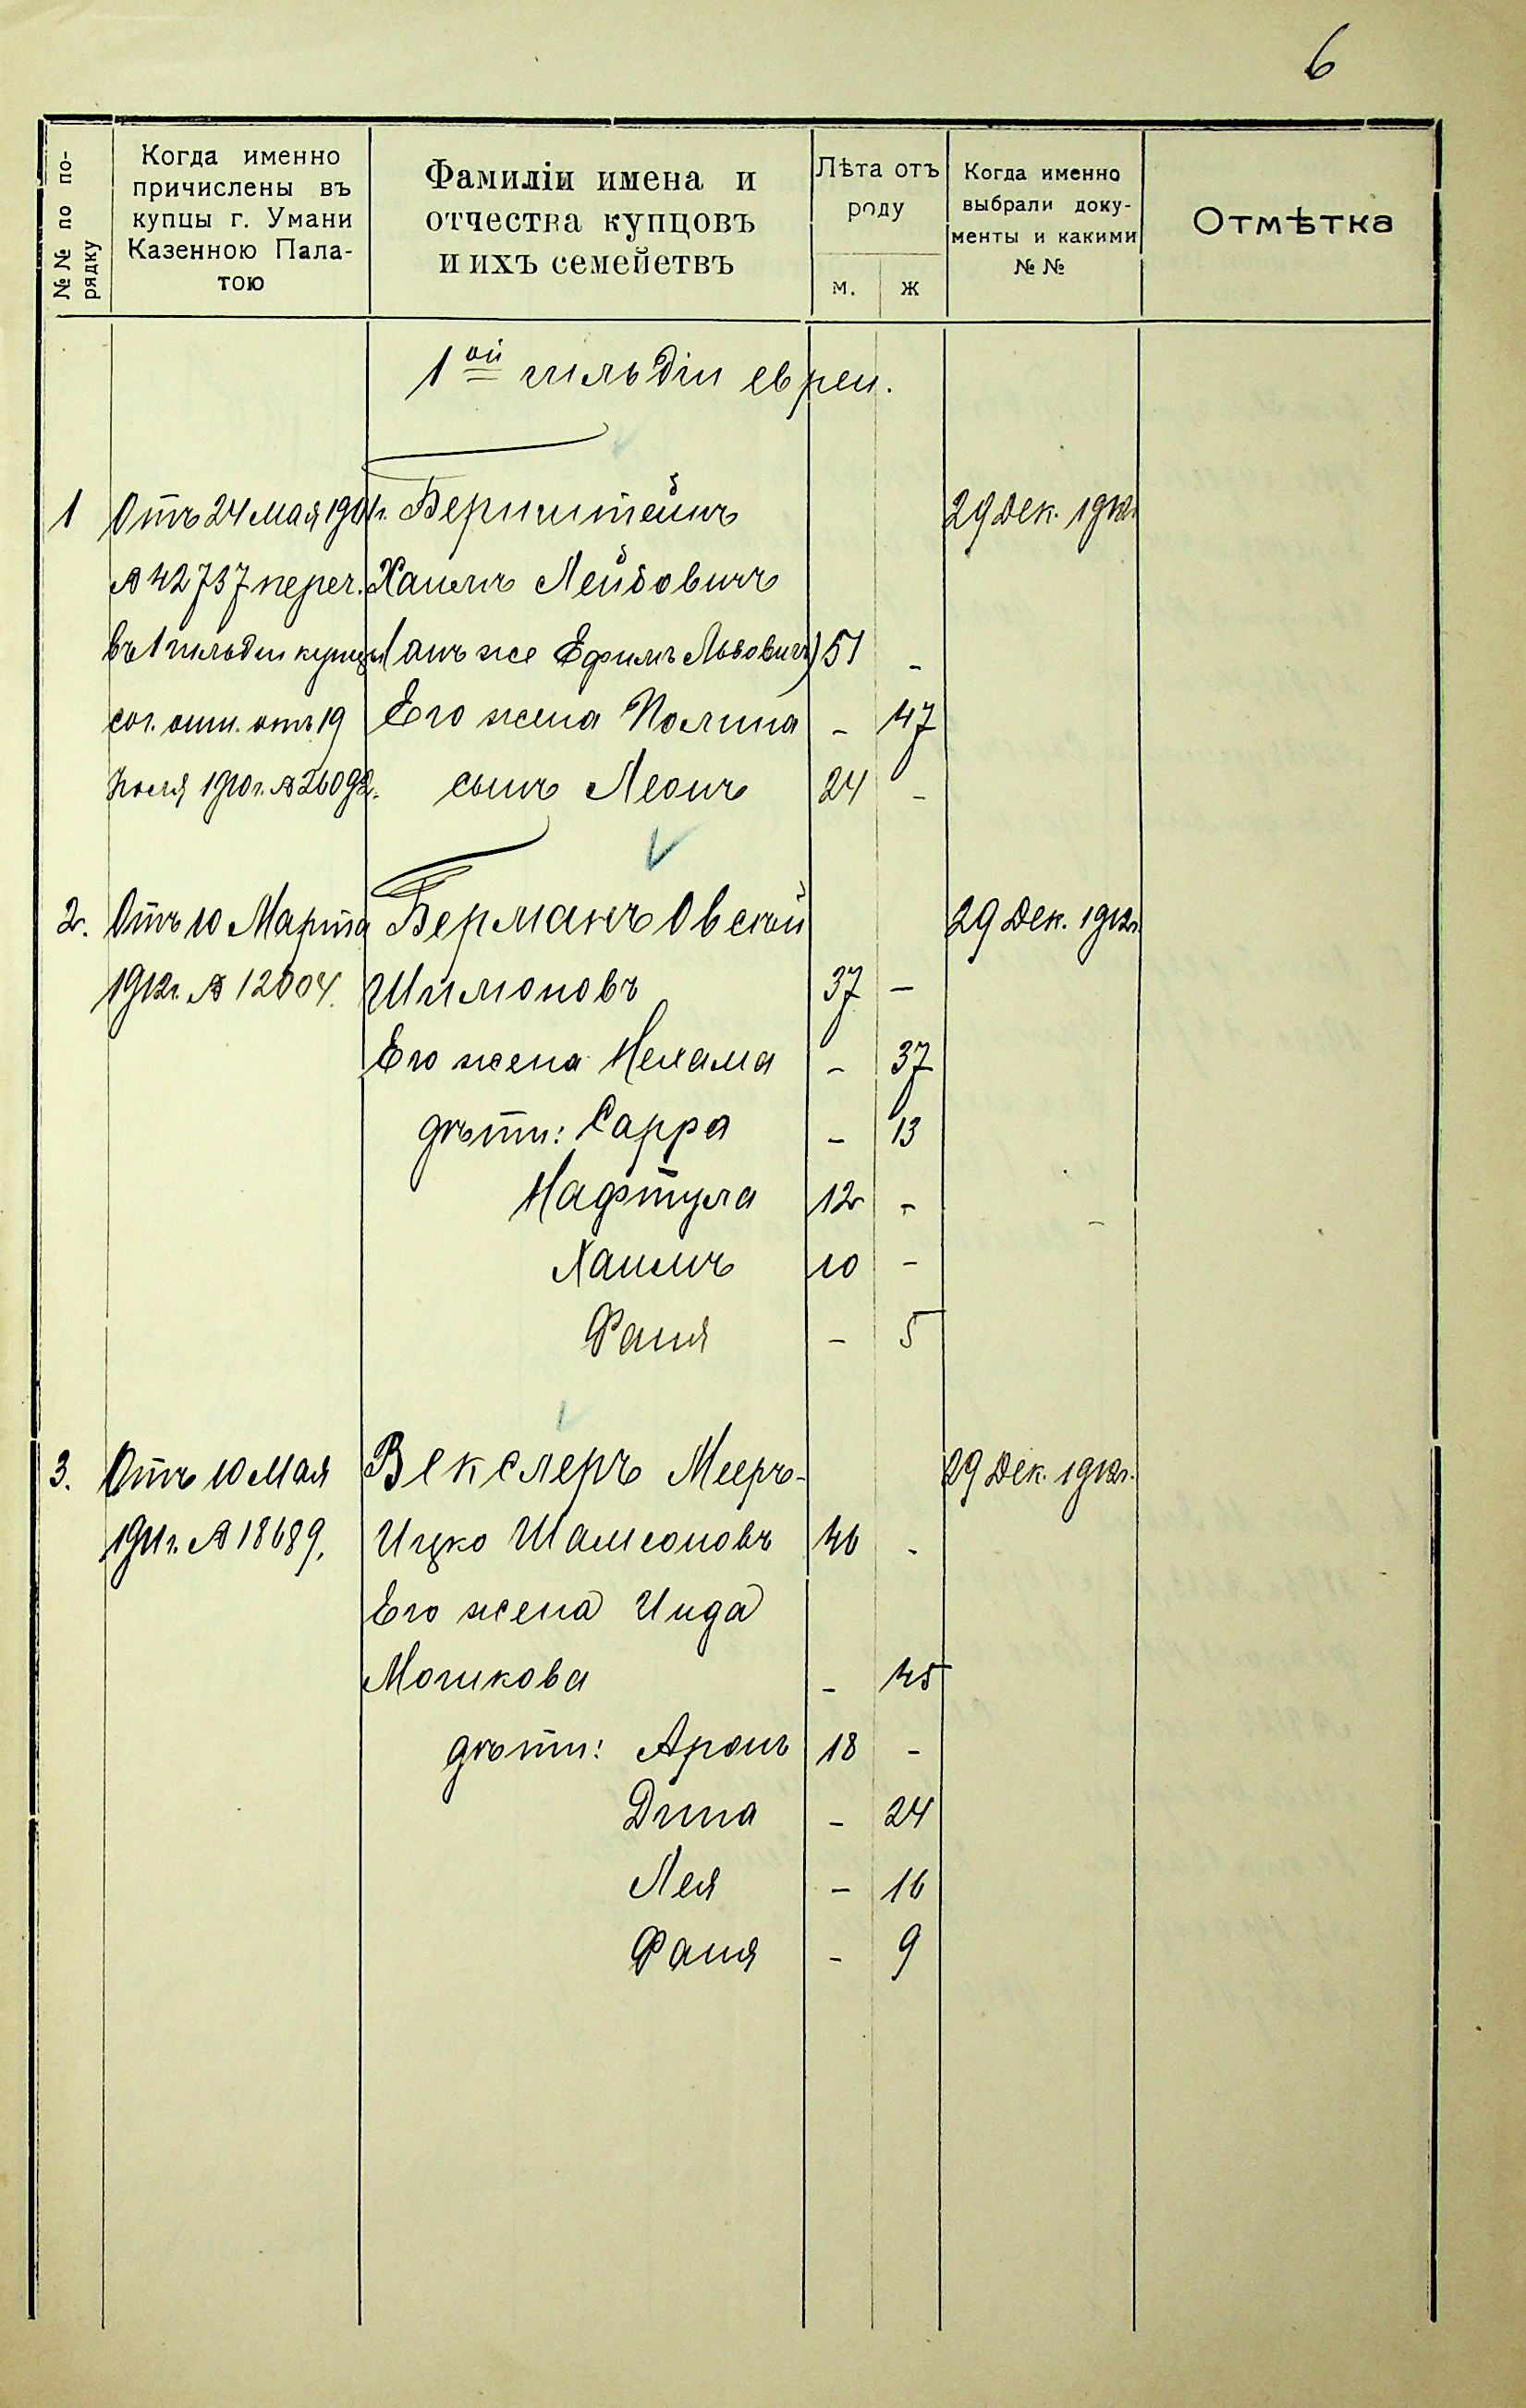 6
№№ по по-
рядку
Когда именно
причислены въ
купцы г. Умани
Казенною Пала-
тою
Фамиліи имена и
отчества купцовъ
и ихъ семействъ
Лѣта отъ
роду
м. ж
Когда именно
выбрали доку-
менты и какими
№ №
Отмѣтка
1ой гильдіи евреи.
1 Отъ 24 мая 1901г. Бернштейнъ 29 Дек. 1912г.
№ 42737 переч. Хаимъ Лейбовичъ
въ 1 гильдіи купцы (онъ же Ефимъ Львовичъ) 51 -
сог. отн. отъ 19 Его жена Полина - 47
Іюля 1910г. № 26092. сынъ Леонъ 24 -
2. Отъ 10 Марта Берманъ Овсей 29 Дек. 1912г.
1912г. № 12004. Шимоновъ 37 -
Его жена Нехама - 37
дѣти: Сарра - 13
Нафтула 12 -
Хаимъ 10 -
Фаня - 5
3. Отъ 10 Мая Векслеръ Мееръ- 29 Дек. 1912г.
1911г. № 18689. Ицко Шамсоновъ 46 -
Его жена Инда
Мошкова - 45
дѣти: Аронъ 18 -
Дина - 24
Лея - 16
Фаня - 9